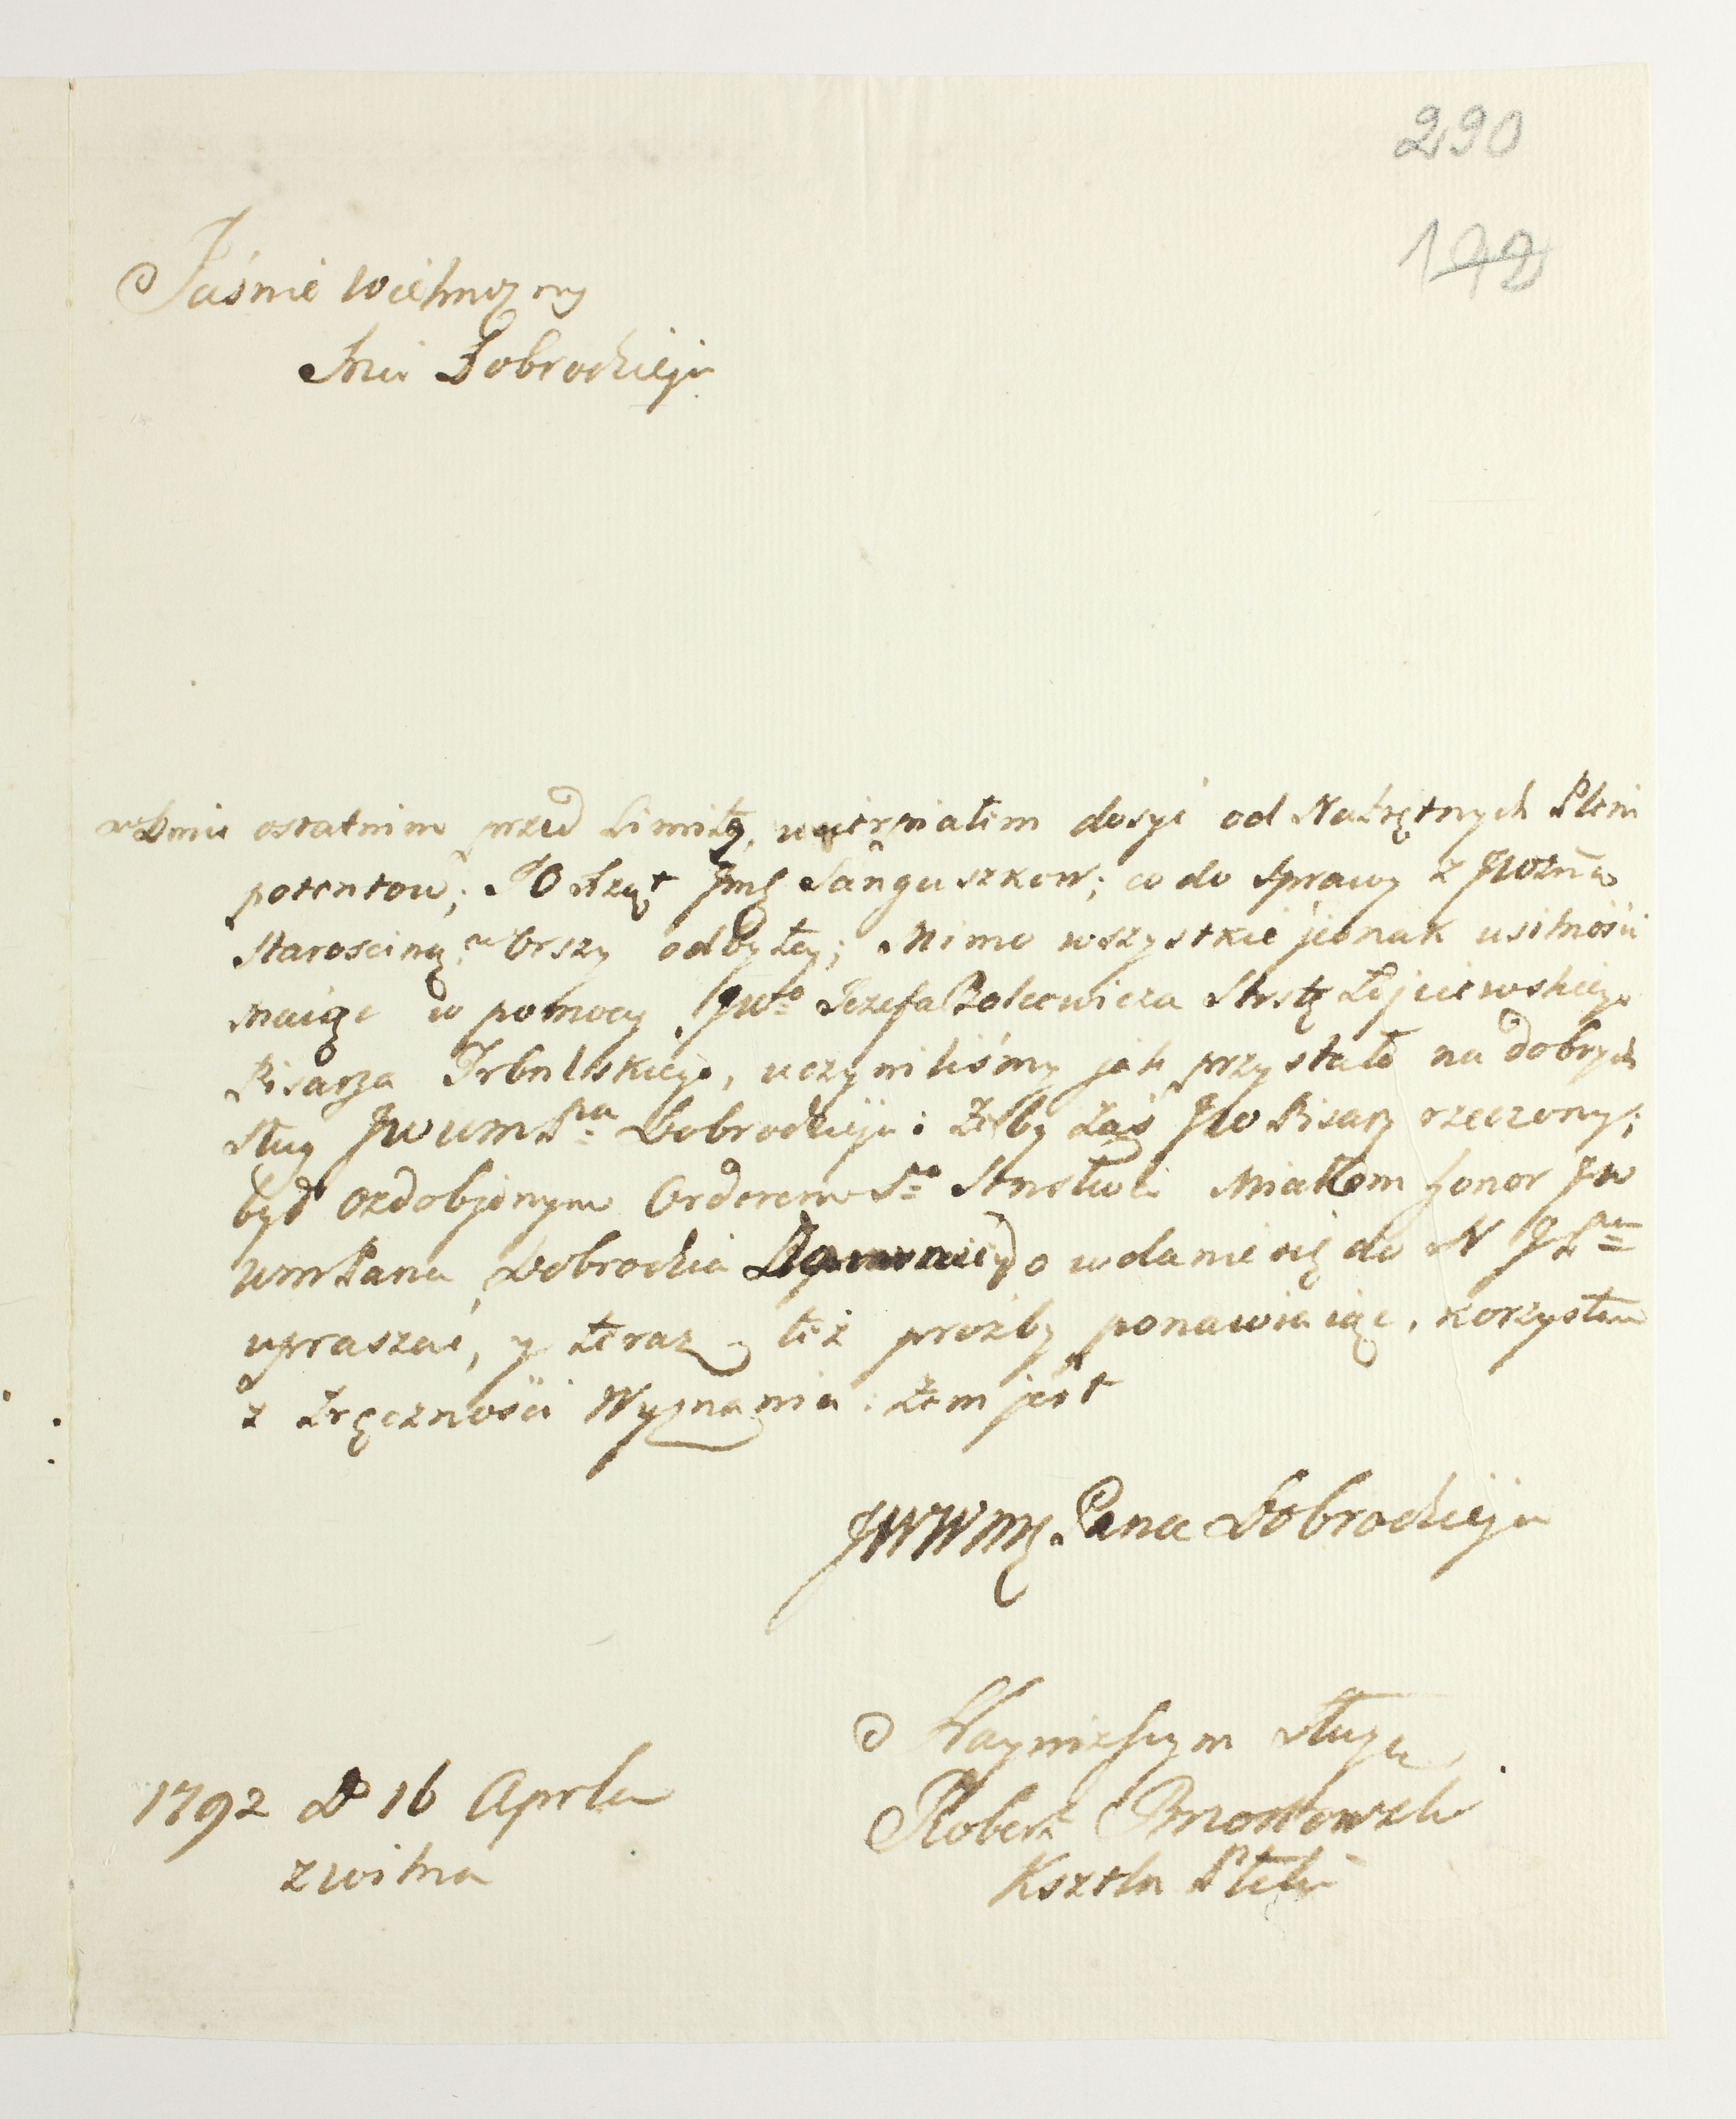 290
172
Jaśnie Wielmożny
Mci Dobrodzieju
w Dniu ostatnim przed Limitą, ucierpiałem dosyć od Natrętnych Pleni
potentow; JO Xżąt Jmć Sanguszkow; co do Sprawy z JWożną
Starosciną, w Orszy odbytey; Mimo wszystkie jednak usilności
Maiąc w pomocy JWo Jozefa Wolowicza Strstę
Pisarza Trbnlskiego, uczyniliśmy jak przystało na dobrych
sług JWWMPna Dobrodzieja; Żeby Zaś JW Pisarz rzeczony;
był ozdobjonym Orderem So Stnsława Miałem honor JW
WMPana Dobrodzia o wdanie się do N JPna
upraszać, y teraz też proźby ponawiaiąc, korzystam
z Zręczności Wyznania: Żem jest
JWWMć Pana Dobrodzieja
Nayniższym Sługą
Robert Brzostowski
Ksztln Płcki
1792 D 16 Aprla
z Wilna